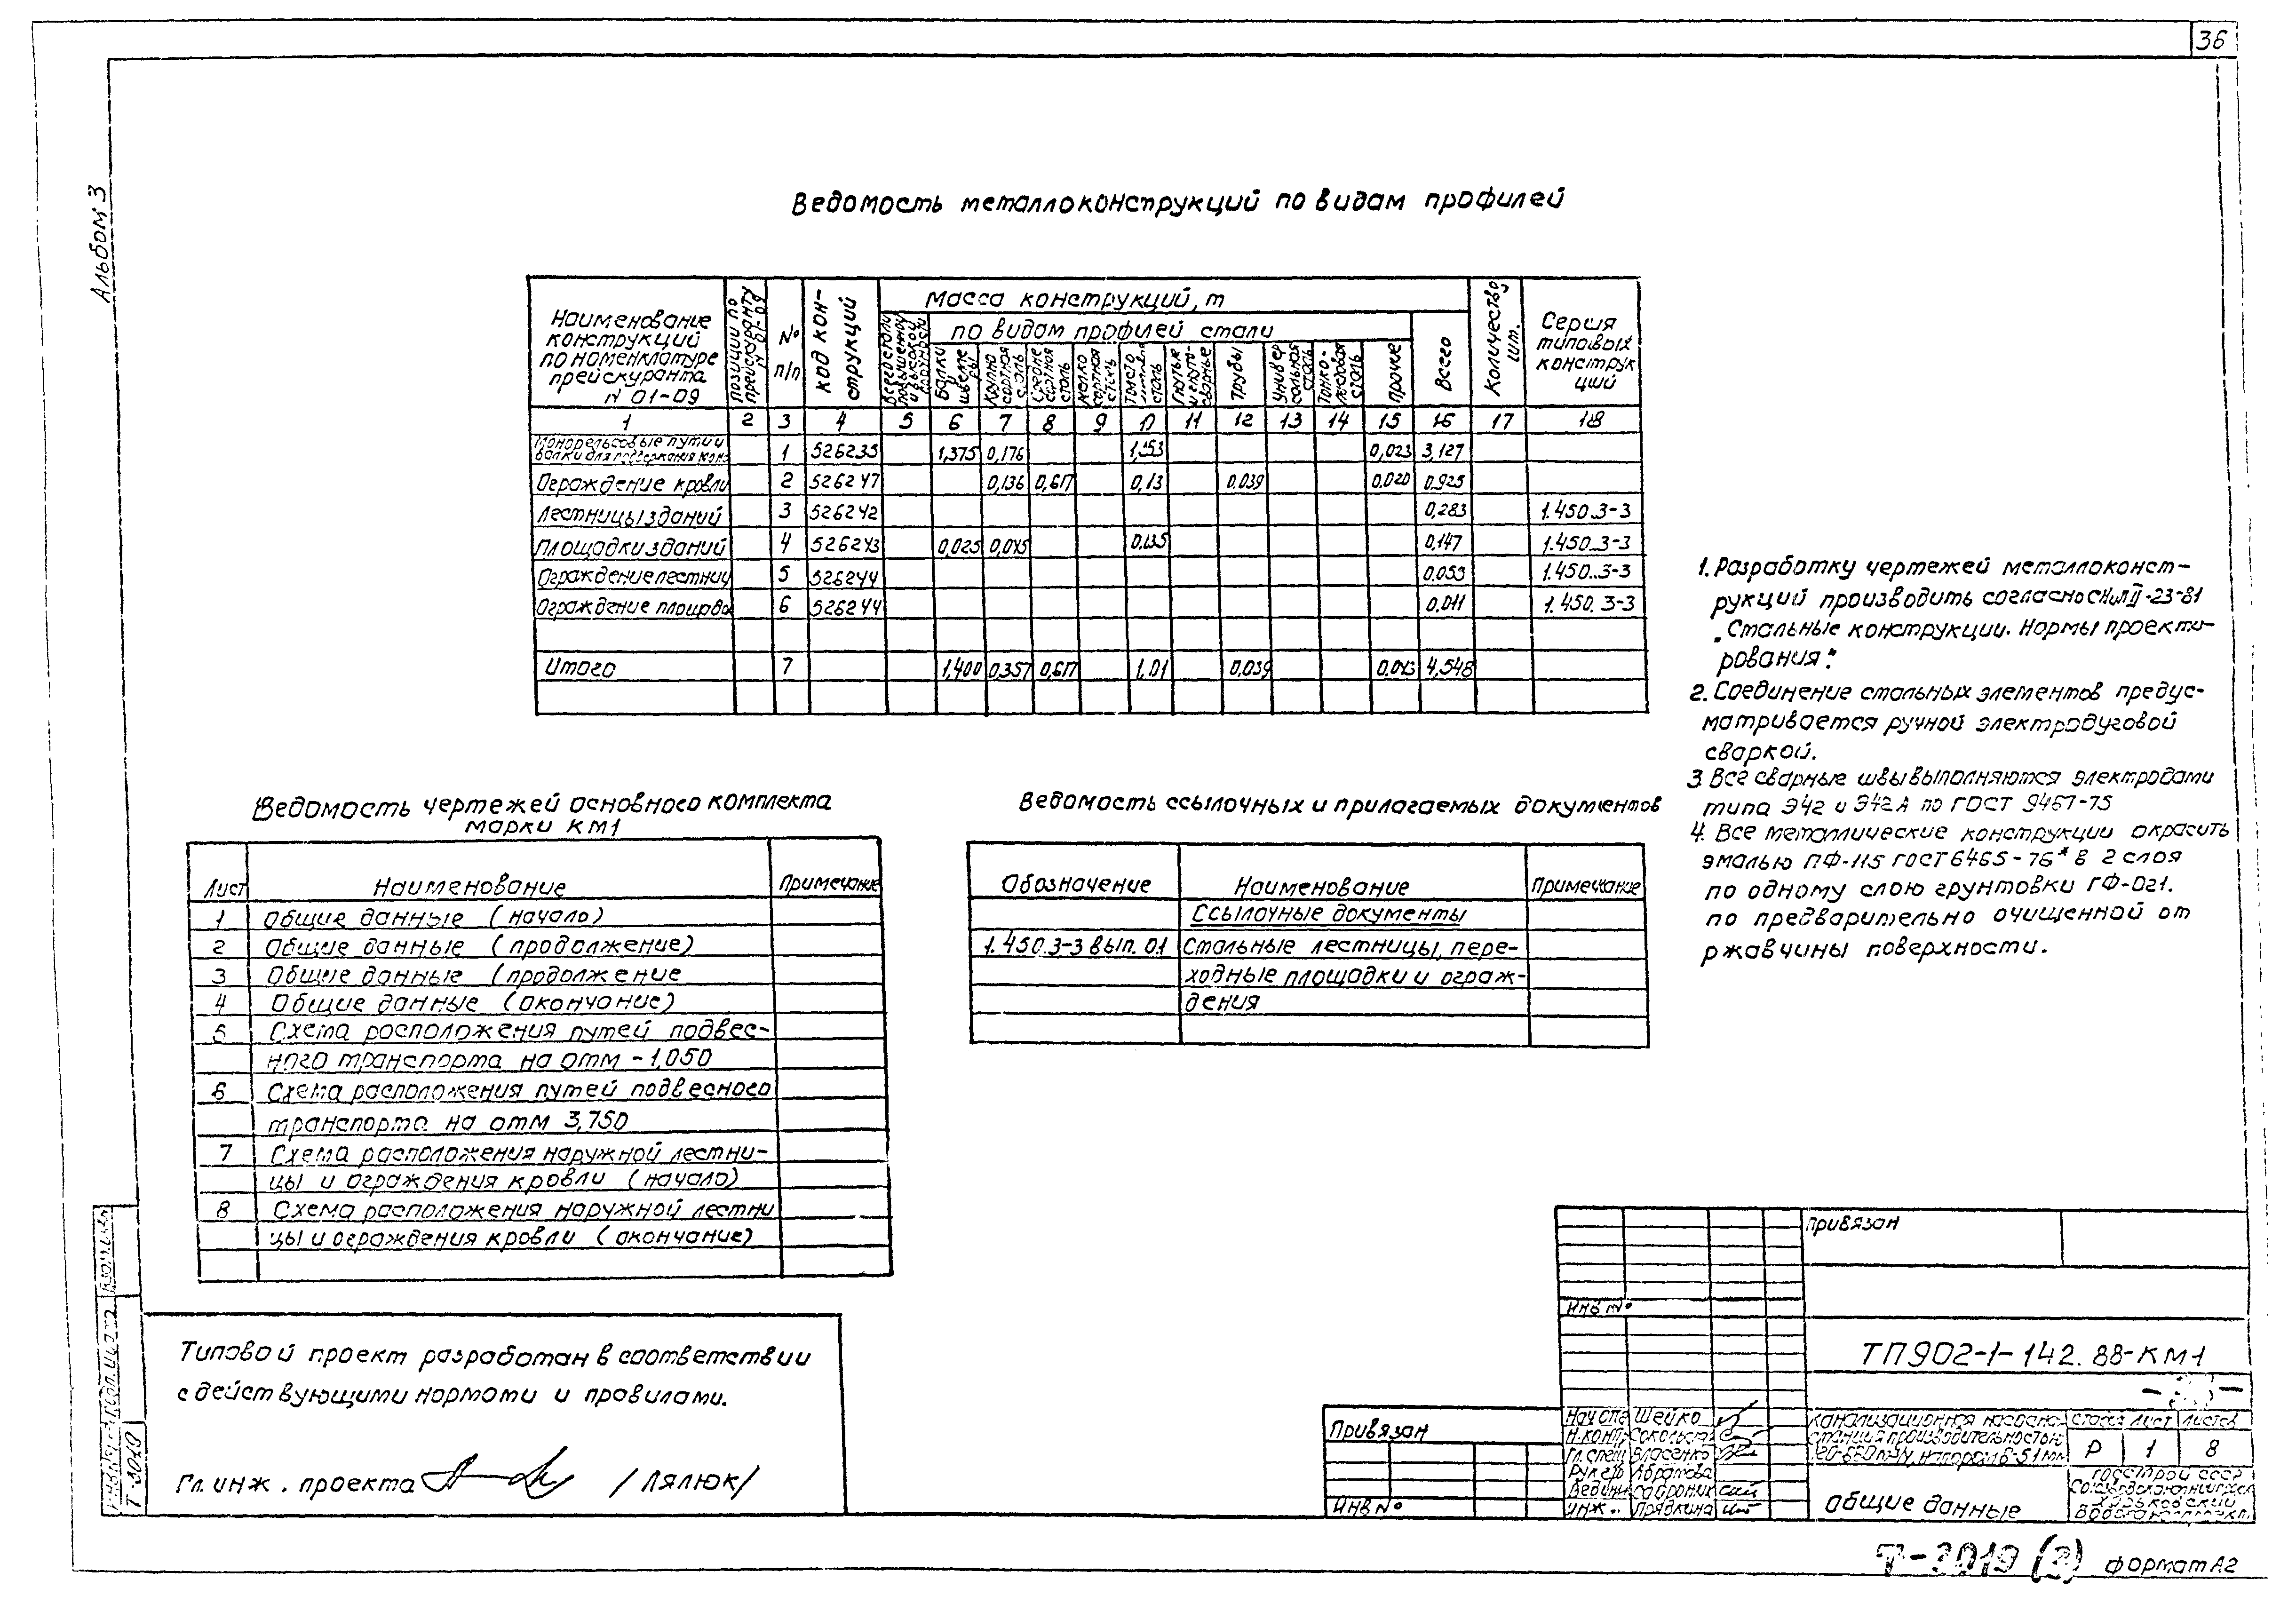 36
Альбом 3
Ведомость металлоконструкций по видам профилей
Наименование конструкций по номенклатуре прейскуранта N 01-09
Позиции по прейскуранту N 01-09
№ п/п
код конструкций
Масса конструкций, т
по видам профилей стали
Всего
Количество, шт.
Серия типовых конструк ций
Балки и швелле ры
Крупно сортная сталь
Средне сортная сталь
Мелко сортная сталь
Трубы
Универ сальная сталь
Тонко- листовая сталь
Прочие
1 2 3 4 5 6 7 8 9 10 11 12 13 14 15 16 17 18
Монорельсовые пути и
балки для поддержания 1 526235 1,375 0,176 0,023 3,127
Ограждение кровли 2 526247 0,136 0,617 0,13 0,039 0.020 0.925
Лестницы зданий 3 526242 0,283 1.450.3-3
Площадки зданий 4 526243 0,025 0,045 0,147 1.450.3-3
Ограждение лестниц 5 526244 0,053 1.450.3-3
Ограждение площадо 6 526244 0,011 1.450.3-3
Итого 7 1,400 0,357 0,617 1,01 0,039 0.043 4,548
1. Разработку чертежей металлоконст-
рукций производить согласно СНиП II-23-81
„Стальные конструкции. Нормы проекти-
рования".
2. Соединение стальных элементов предус-
матривается ручной электродуговой
сваркой.
3. Все сварные швы выполняются электродами
типа Э42 и Э42А по ГОСТ 9467-75
4. Все металлические конструкции окрасить
эмалью ПФ-115 ГОСТ 6465-76* в 2 слоя
по одному слою грунтовки ГФ-021.
по предварительно очищенной от
ржавчины поверхности.
Ведомость чертежей основного комплекта
марки КМ1
Лист Наименование Примечание
1 Общие данные (начало)
2 Общие данные (продолжение)
3 Общие данные (продолжение
4 Общие данные (окончание)
5 Схема расположения путей подвес-
ного транспорта на отм -1,050
6 Схема расположения путей подвесного
транспорта на отм 3,750
7 Схема расположения наружной лестни-
цы и ограждения кровли (начало)
8 Схема расположения наружной лестни
цы и ограждения кровли (окончание)
Ведомость ссылочных и прилагаемых документов
Обозначение Наименование Примечание
Ссылочные документы
1.450.3-3 вып. 0.1 Стальные лестницы, пере-
ходные площадки и ограж-
дения
Типовой проект разработан в соответствии
с действующими нормами и правилами.
Гл. инж. проекта /Лялюк/
Т-3019
Привязан
Инв №
Привязан
Инв №
ТП902-1-142.88-КМ1
Нач отд Шейко
Н.контр
Гл. спец Власенко
Рук.гр Абрамова
Инж. Прядкина
Канализационная насосная
станция производительностью
Стадия Лист Листов
Р 1 8
Общие данные
Госстрой СССР
Харьковский
Водоканалпроект
Т-3019 (3) формат А2